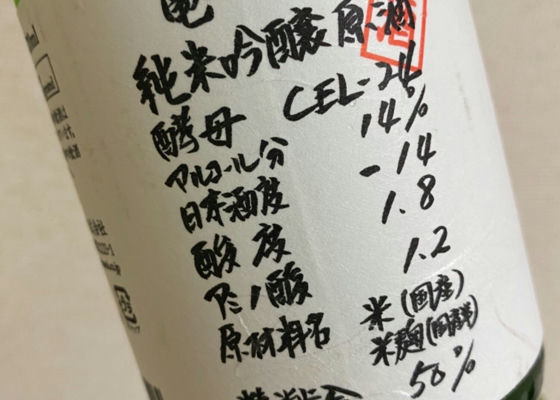 亀
純米吟醸原酒
酵母 CEL-24
アルコール分 14%
日本酒度 -14
酸度 1.8
アミノ酸 1.2
原材料名 米(国産)
米麹(国産米)
50%